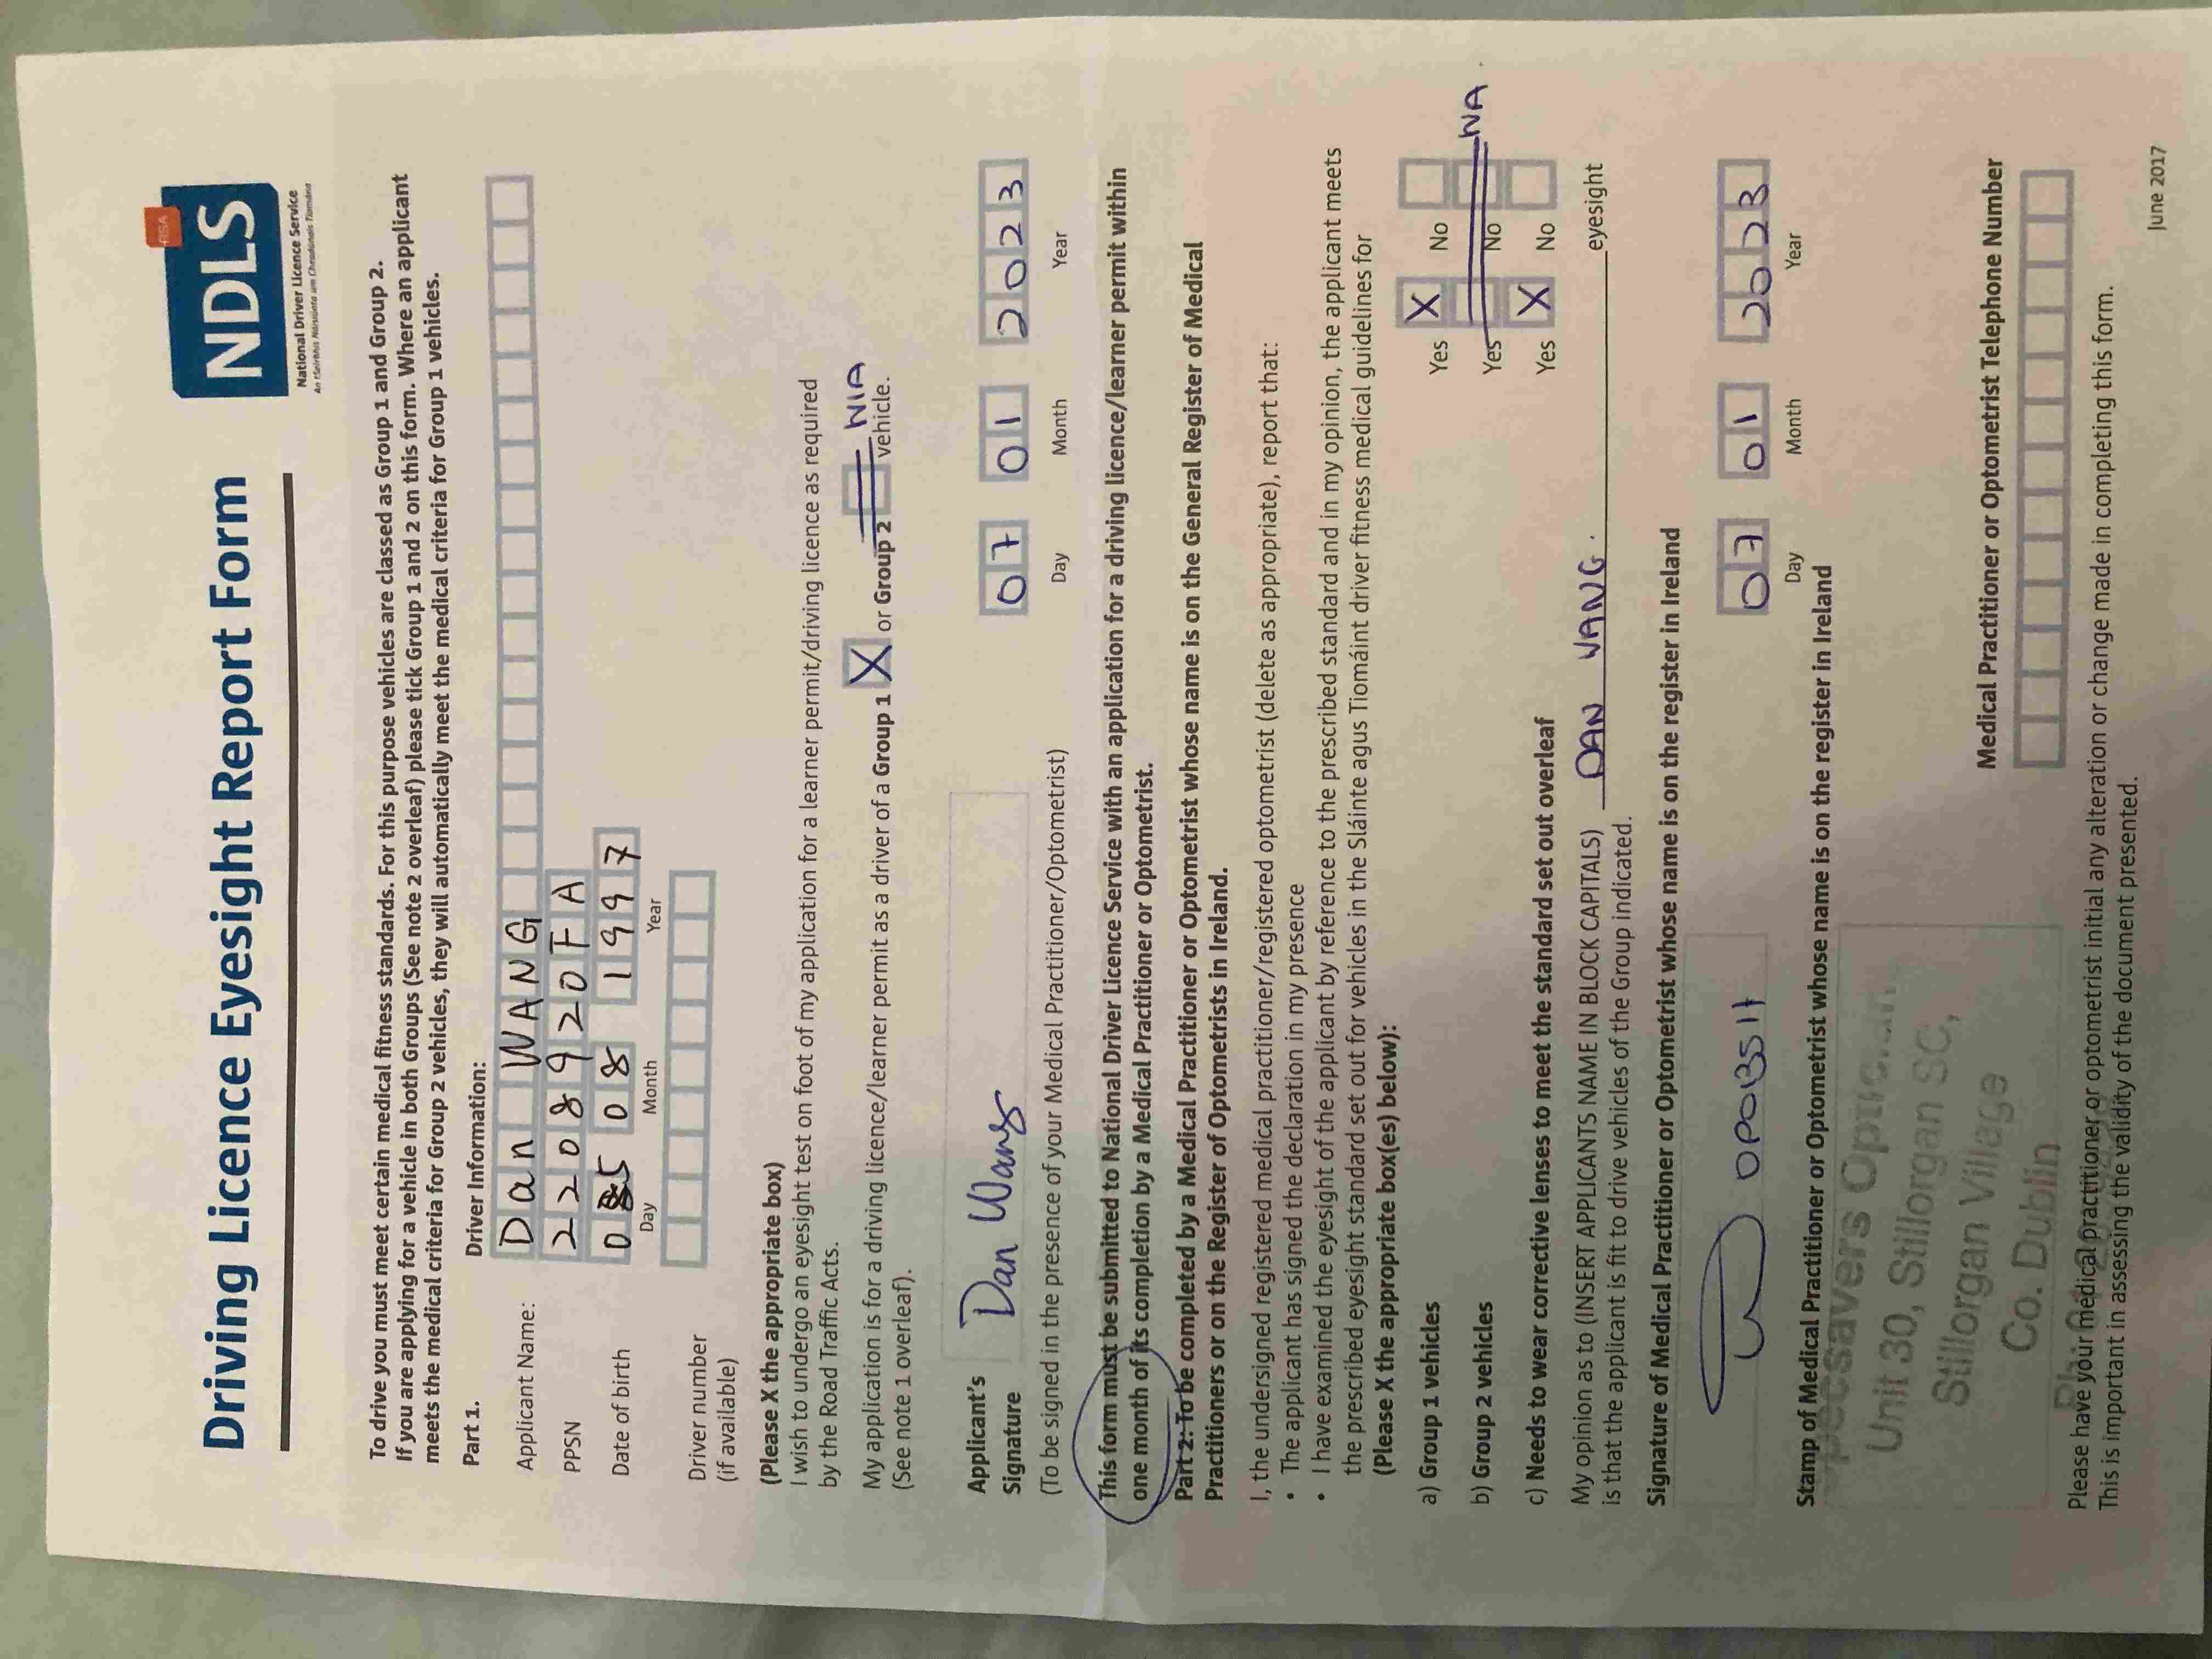 Driving Licence Eyesight Report Form
RSA
NDLS
National Driver Licence Service
An tSeirbhís Náisiúnta um Cheadúnais Tiomána
To drive you must meet certain medical fitness standards. For this purpose vehicles are classed as Group 1 and Group 2.
If you are applying for a vehicle in both Groups (See note 2 overleaf) please tick Group 1 and 2 on this form. Where an applicant
meets the medical criteria for Group 2 vehicles, they will automatically meet the medical criteria for Group 1 vehicles.
Part 1. Driver Information:
Applicant Name: Dan WANG
PPSN 2208920FA
Date of birth 05 08 1997
Day Month Year
Driver number
(if available)
(Please X the appropriate box)
I wish to undergo an eyesight test on foot of my application for a learner permit/driving licence as required
by the Road Traffic Acts.
My application is for a driving licence/learner permit as a driver of a Group 1 X or Group 2 vehicle. N/A
(See note 1 overleaf).
Applicant's
Signature Dan Wang 07 01 2023
Day Month Year
(To be signed in the presence of your Medical Practitioner/Optometrist)
This form must be submitted to National Driver Licence Service with an application for a driving licence/learner permit within
one month of its completion by a Medical Practitioner or Optometrist.
Part 2: To be completed by a Medical Practitioner or Optometrist whose name is on the General Register of Medical
Practitioners or on the Register of Optometrists in Ireland.
I, the undersigned registered medical practitioner/registered optometrist (delete as appropriate), report that:
• The applicant has signed the declaration in my presence
• I have examined the eyesight of the applicant by reference to the prescribed standard and in my opinion, the applicant meets
the prescribed eyesight standard set out for vehicles in the Sláinte agus Tiomáint driver fitness medical guidelines for
(Please X the appropriate box(es) below):
a) Group 1 vehicles Yes X No
b) Group 2 vehicles Yes No NA
c) Needs to wear corrective lenses to meet the standard set out overleaf Yes X No
My opinion as to (INSERT APPLICANTS NAME IN BLOCK CAPITALS) DAN WANG. eyesight
is that the applicant is fit to drive vehicles of the Group indicated.
Signature of Medical Practitioner or Optometrist whose name is on the register in Ireland
07 01 2023
Day Month Year
Stamp of Medical Practitioner or Optometrist whose name is on the register in Ireland
Specsavers
Unit 30, Stillorgan SC,
Stillorgan Village
Co. Dublin
Medical Practitioner or Optometrist Telephone Number
Please have your medical practitioner or optometrist initial any alteration or change made in completing this form.
This is important in assessing the validity of the document presented.
June 2017